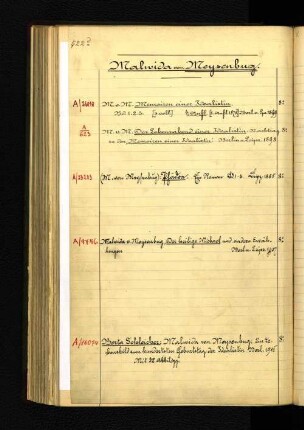 Malwida von Meysenbug.
M. v. M. Memoiren einer Idealistin. 8°
Bd 1. 2. 3.
A
M. v. M. Der Lebensabend einer Idealistin. Nachtrag 8°
zu den Memoiren einer Idealistin. Berlin u. Leipz. 1898
(M. von Meysenbug): Phädra. Ein Roman Bd 1-3. Leipz. 1885 8°
Malwida v. Meysenbug. Der heilige Michael und andere Erzäh- 8°
lungen Berlin Leipz. 1907
Berta Schleicher: Malwida von Meysenbug. Ein Le- 8°
bensbild zum hundertsten Geburtstag der Idealistin. Berl. 1916
Mit Abb.